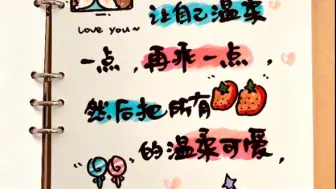 让自己温柔
love you~
一点，再乖一点，
然后把所有
的温柔可爱，